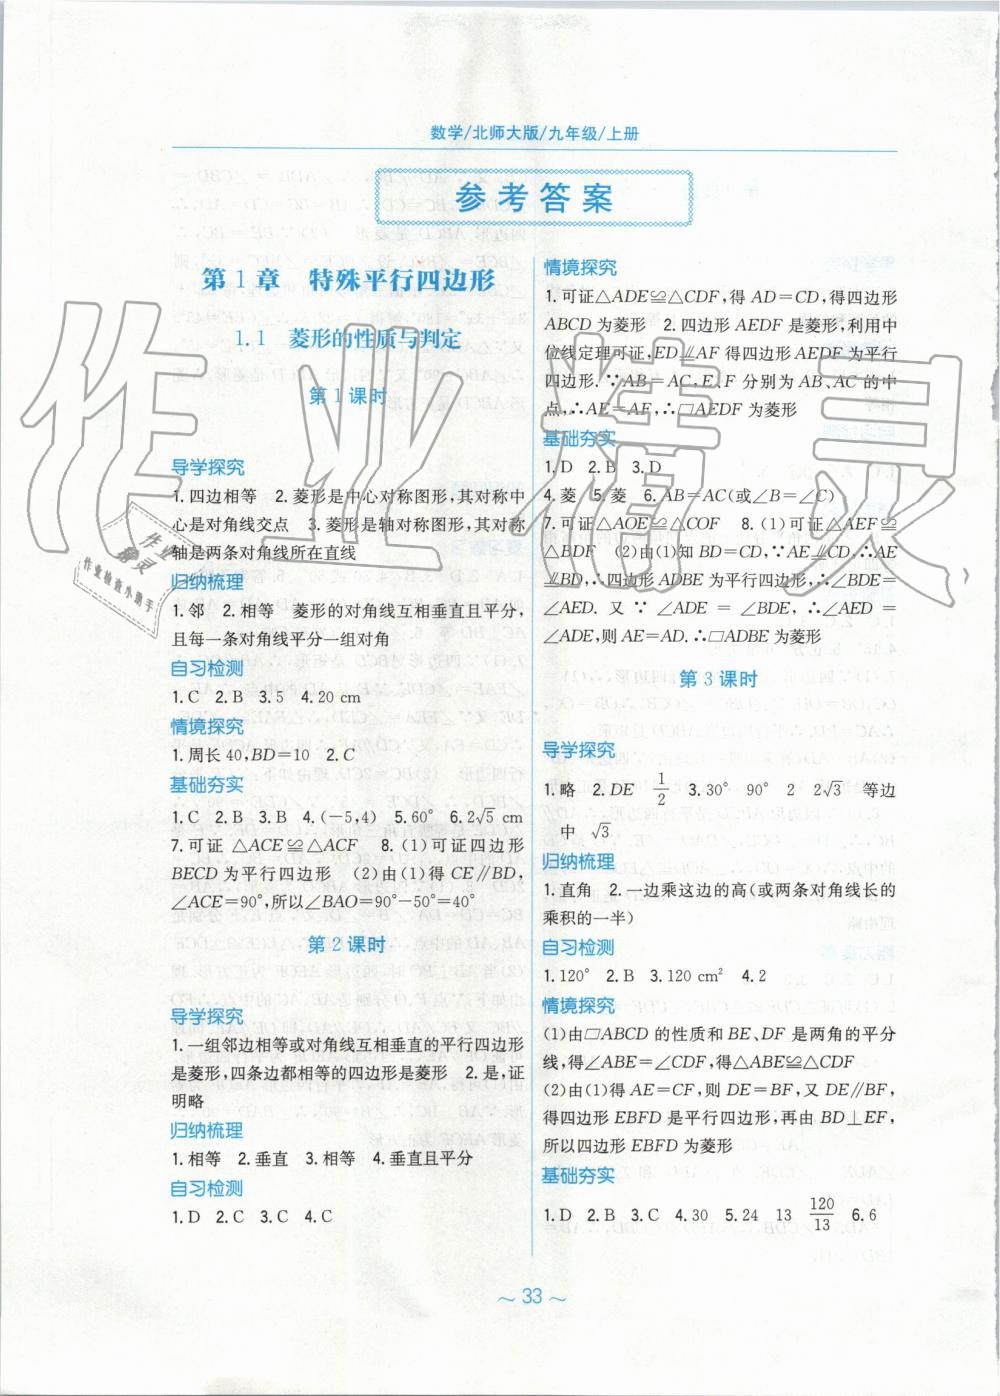 数学/北师大版/九年级/上册
参考答案
第1章 特殊平行四边形
1.1 菱形的性质与判定
第1课时
导学探究
1.四边相等 2.菱形是中心对称图形,其对称中
心是对角线交点 3.菱形是轴对称图形,其对称
轴是两条对角线所在直线
归纳梳理
1.邻 2.相等 菱形的对角线互相垂直且平分,
且每一条对角线平分一组对角
自习检测
1.C 2.B 3.5 4.20 cm
情境探究
1.周长40,BD=10 2.C
基础夯实
1.C 2.B 3.B 4.(-5,4) 5.60° 6.2√5 cm
7.可证 △ACE≌△ACF 8.(1)可证四边形
BECD为平行四边形 (2)由(1)得CE∥BD,
∠ACE=90°,所以∠BAO=90°-50°=40°
第2课时
导学探究
1.一组邻边相等或对角线互相垂直的平行四边形
是菱形,四条边都相等的四边形是菱形 2.是,证
明略
归纳梳理
1.相等 2.垂直 3.相等 4.垂直且平分
自习检测
1.D 2.C 3.C 4.C
情境探究
1.可证△ADE≌△CDF,得AD=CD,得四边形
ABCD为菱形 2.四边形AEDF是菱形,利用中
位线定理可证,ED∥AF得四边形AEDF为平行
四边形.∵AB=AC,E、F分别为AB、AC的中
点,∴AE=AF,∴□AEDF为菱形
基础夯实
1.D 2.B 3.D
4.菱 5.菱 6.AB=AC(或∠B=∠C)
7.可证△AOE≌△COF 8.(1)可证△AEF≌
△BDF (2)由(1)知BD=CD,∵AE∥CD,∴AE
∥BD,∴四边形ADBE为平行四边形,∴∠BDE=
∠AED. 又∵ ∠ADE = ∠BDE, ∴∠AED =
∠ADE,则AE=AD.∴□ADBE为菱形
第3课时
导学探究
1.略 2.DE 1/2 3.30° 90° 2 2√3 等边
中 √3
归纳梳理
1.直角 2.一边乘这边的高(或两条对角线长的
乘积的一半)
自习检测
1.120° 2.B 3.120 cm² 4.2
情境探究
(1)由□ABCD的性质和BE、DF是两角的平分
线,得∠ABE=∠CDF,得△ABE≌△CDF
(2)由(1)得AE=CF,则DE=BF,又DE∥BF,
得四边形EBFD是平行四边形,再由BD⊥EF,
所以四边形EBFD为菱形
基础夯实
1.D 2.B 3.C 4.30 5.24 13 120/13 6.6
~33~
作业精灵
作业精灵
作业检查小助手